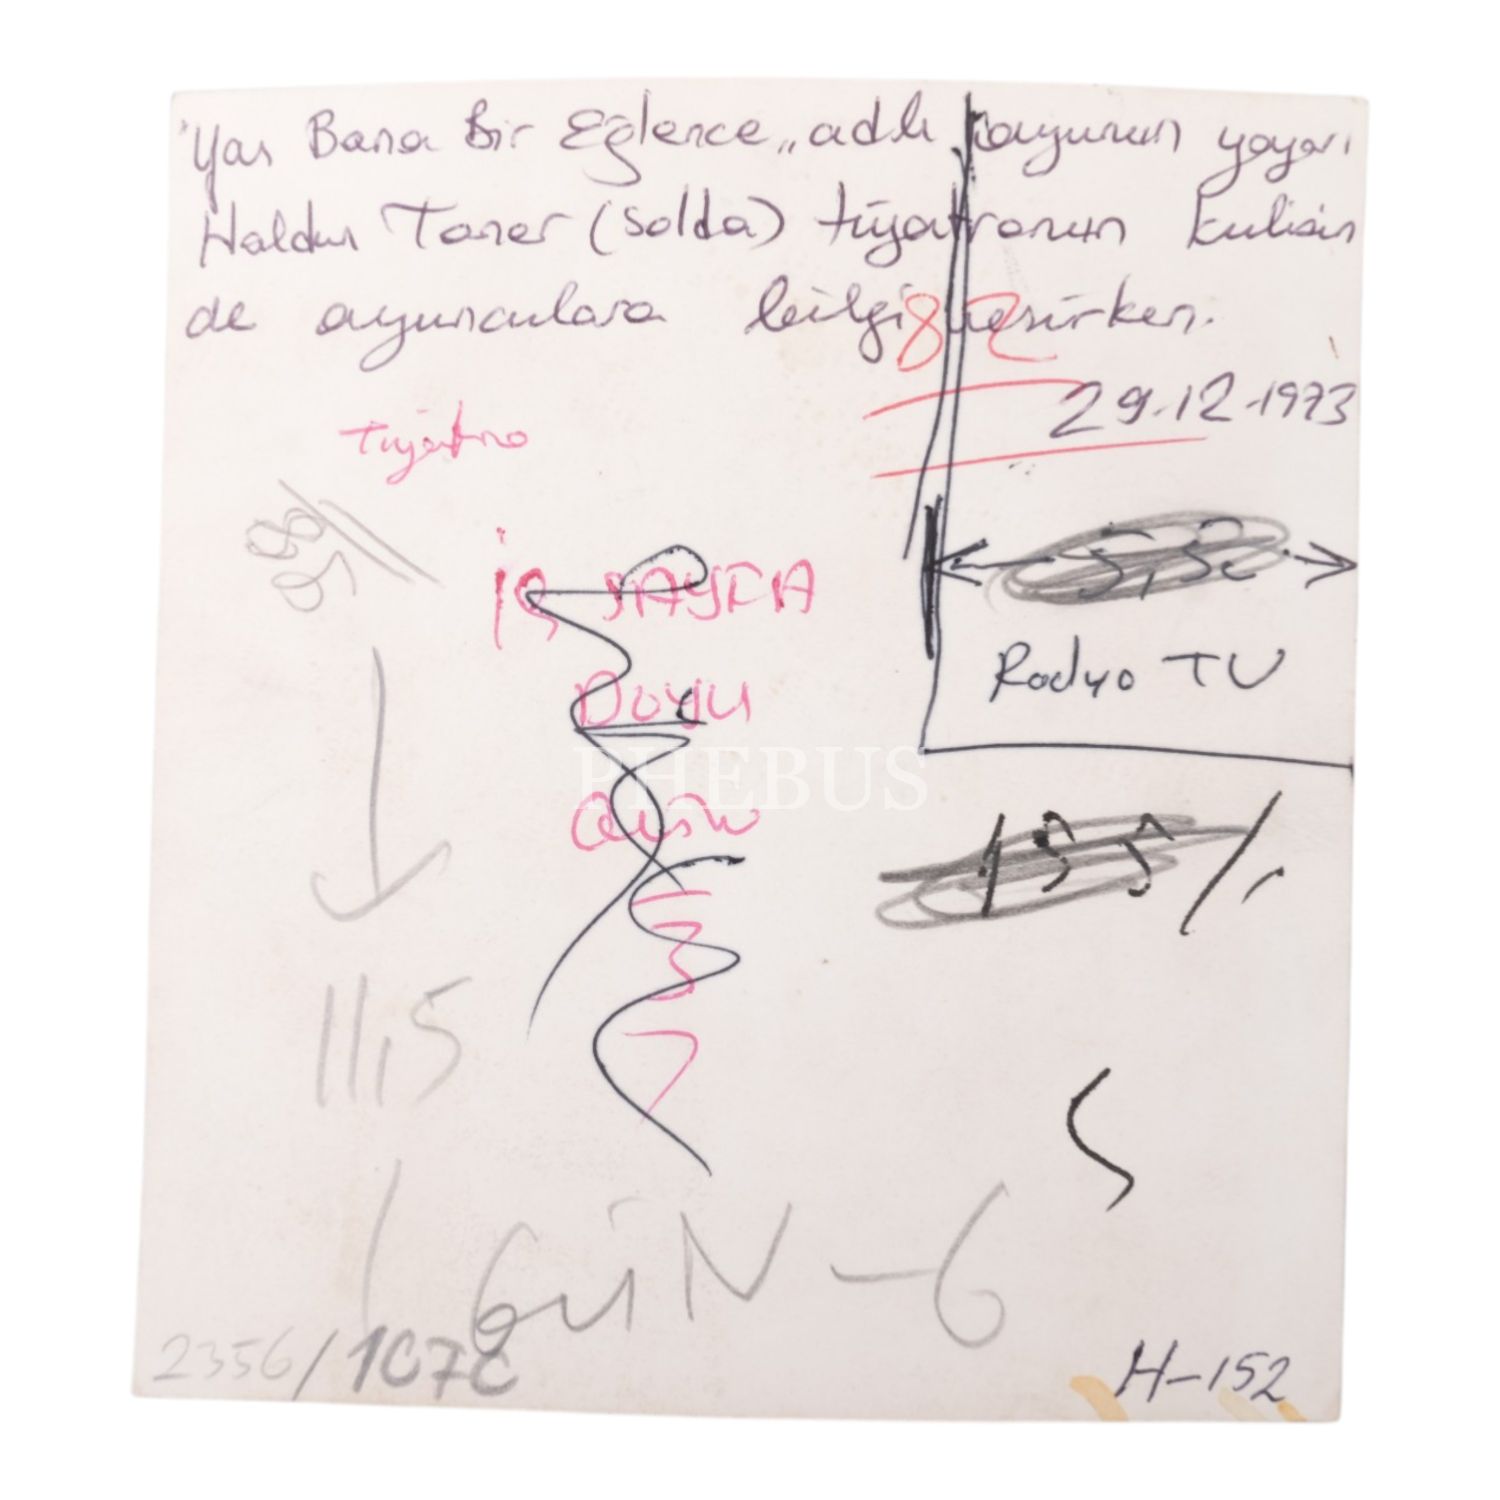 "Yar Bana Bir Eğlence,, adlı oyunun yazarı
Haldun Taner (solda) tiyatronun kulisin
de oyunculara bilgi verirken.
82
29.12.1973
Tiyatro
98
İÇ SAYFA
5,32
Radyo TV
DOYU
PHEBUS
155/.
11,5
GÜN-6
2356/1078
H-152